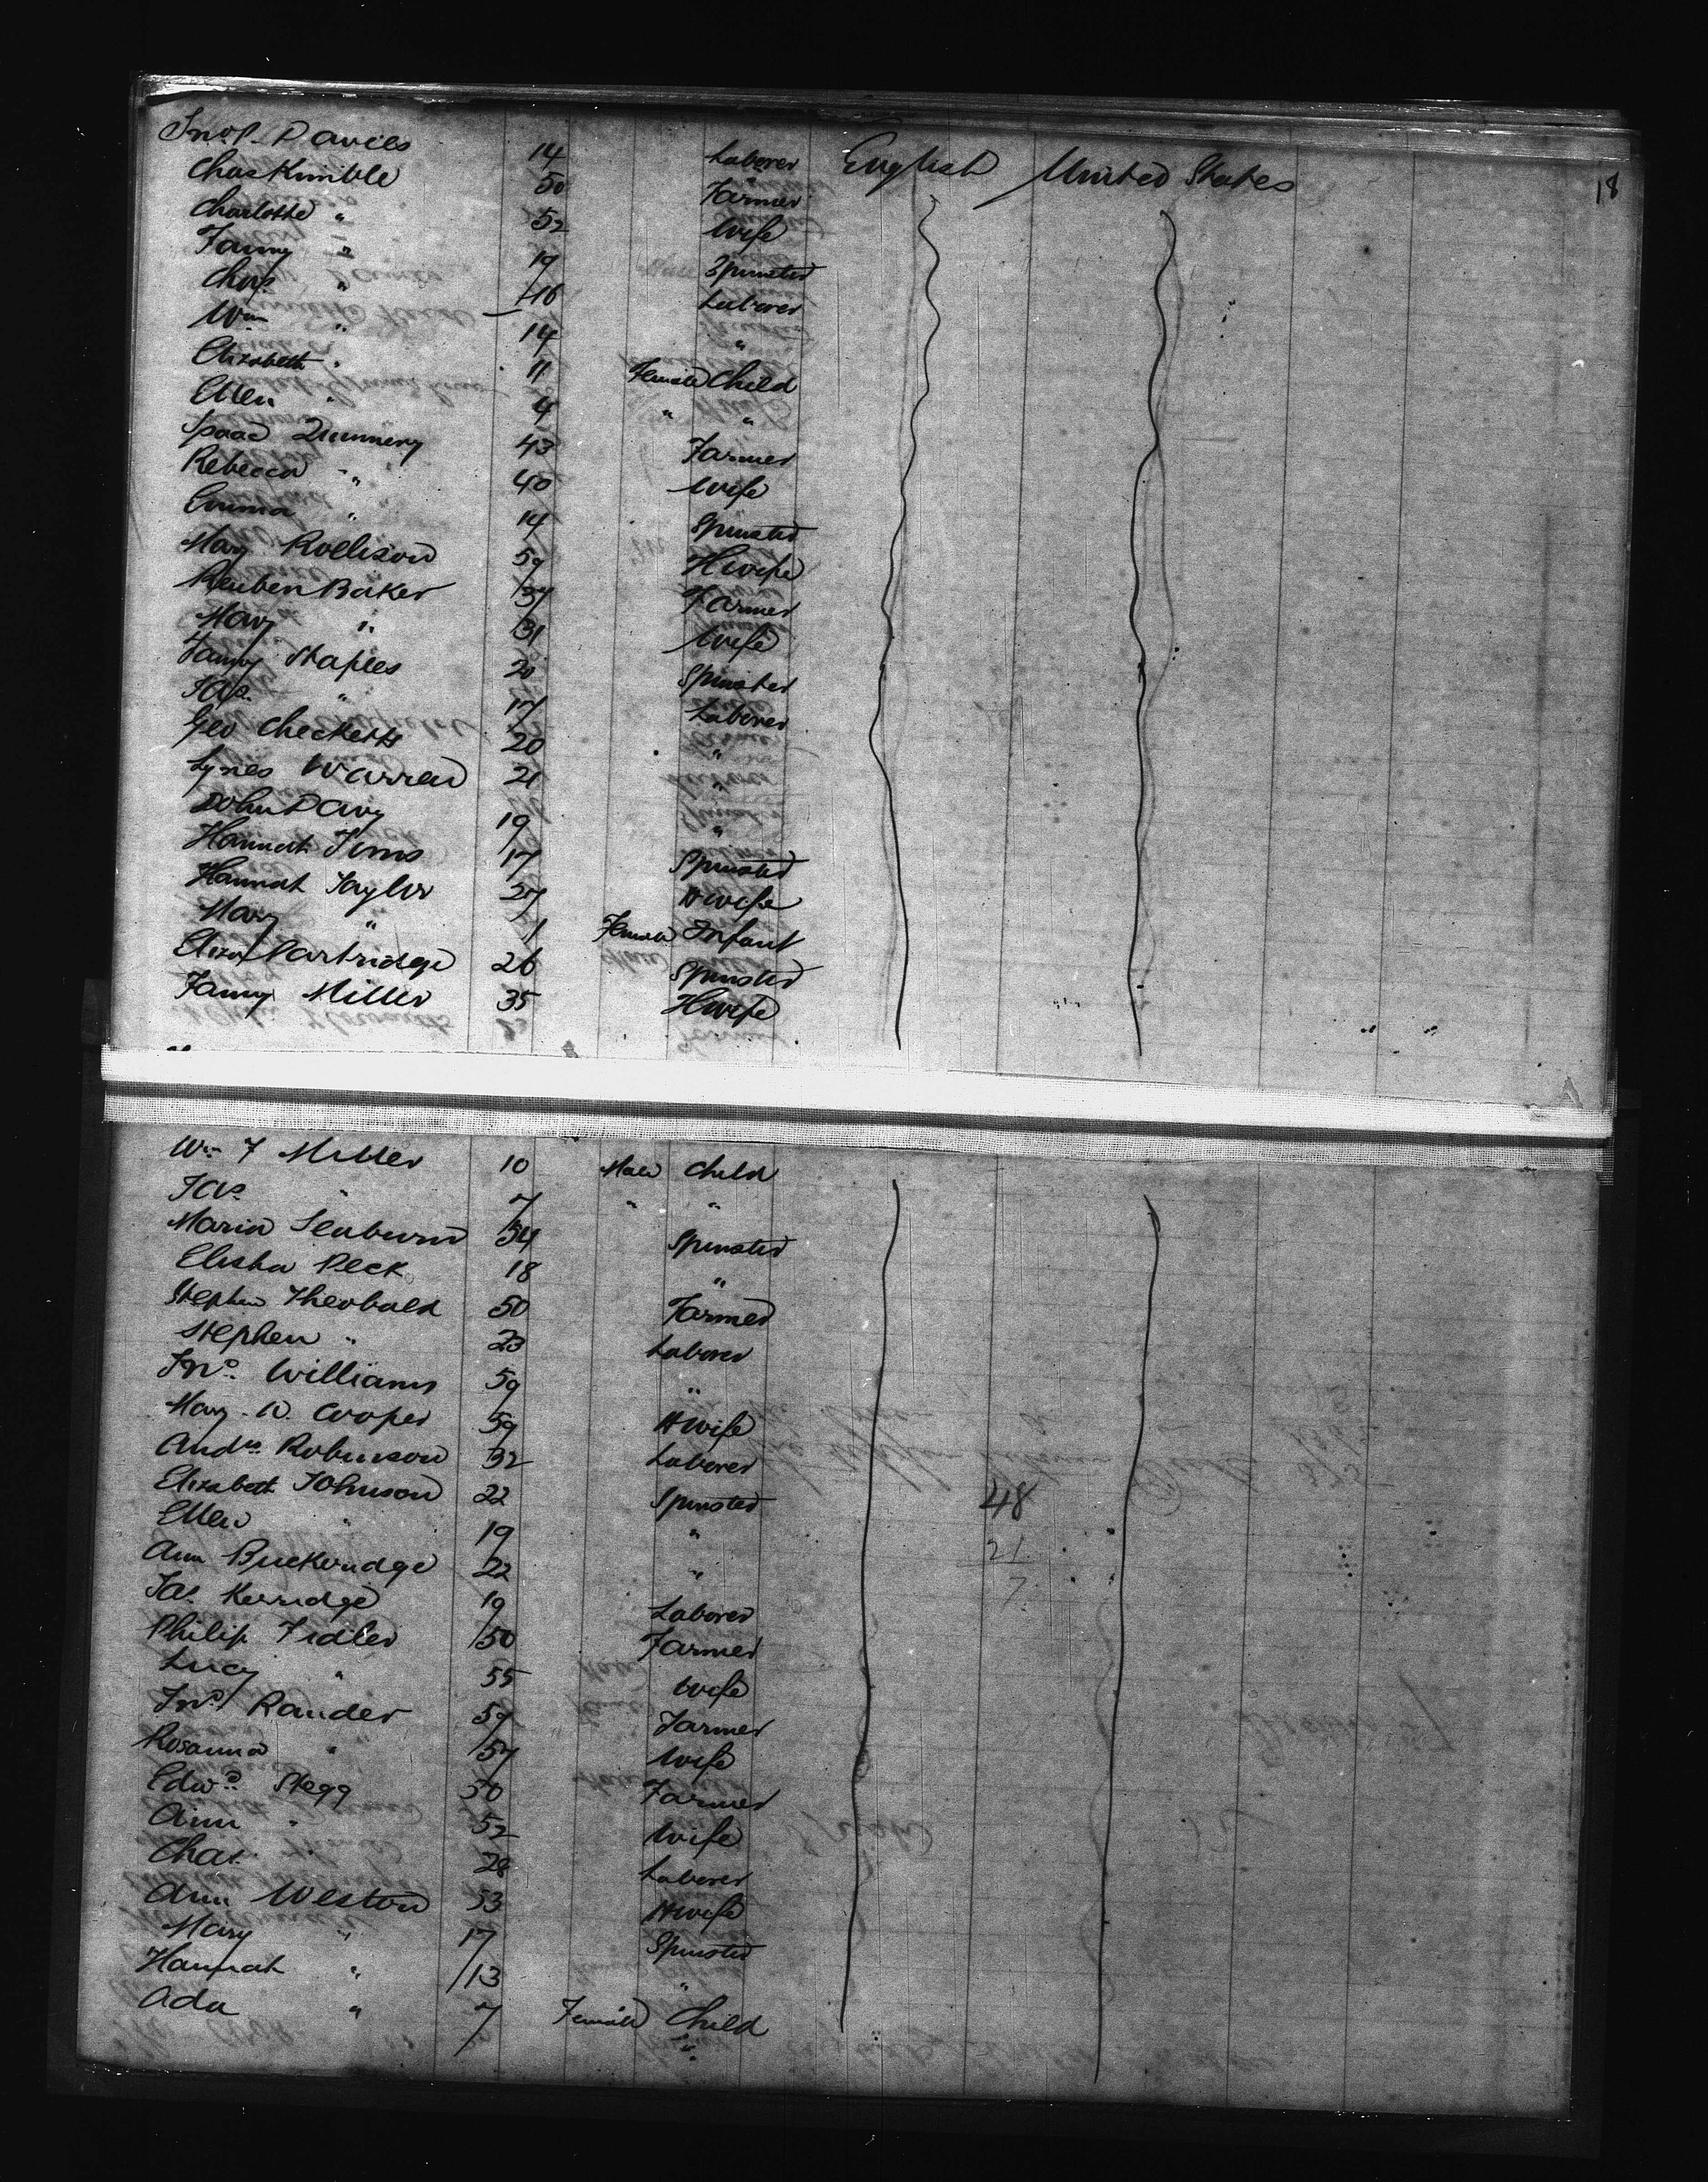 Jno. P. Davies 14 Laborer English United States 18
Chas Kimble 50 Farmer
Charlotte " 52 Wife
Fanny " 19 Spinster
Chas " 16 Laborer
Wm " 14 "
Elizabeth " 11 Female Child
Ellen " 4 " "
Isaac Dunnery 43 Farmer
Rebecca " 40 Wife
Emma " 14 Spinster
Mary Rollison 59 H wife
Reuben Baker 37 Farmer
Mary " 31 Wife
Fanny Staples 20 Spinster
Jas. " 17 Laborer
Geo Checketts 20 "
Lynes Warren 21 "
John Davy 19 "
Hannah Tims 17 Spinster
Hannah Taylor 27 H wife
Mary " 1 Female Infant
Eliza Partridge 26 Spinster
Fanny Miller 35 H wife
Wm F Miller 10 Male Child
Jas. " 7 " "
Maria Seaburn 54 Spinster
Elisha Peck 18 "
Stephen Theobald 50 Farmer
Stephen " 23 Laborer
Jno. Williams 59 "
Mary W. Cooper 59 H wife
Andw. Robinson 32 Laborer
Elizabeth Johnson 22 Spinster 48
Ellen " 19 "
Ann Buckeridge 22 " 21
Jas. Kerridge 19 Laborer 7
Philip Fidler 50 Farmer
Lucy " 55 Wife
Jno. Rander 59 Farmer
Rosanna " 57 Wife
Edwd. Stegg 50 Farmer
Ann " 52 Wife
Chas. " 28 Laborer
Ann Weston 53 H wife
Mary " 17 Spinster
Hannah " 13 "
Ada " 7 Female Child
"